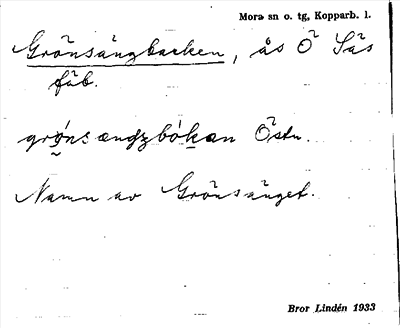 Mora sn o. tg, Kopparb. l.
Grönsängbacken, ås Ö Sås
fäb.
grǫ́nsængzbókan Östn.
Namn av Grönsänget.
Bror Lindén 1933